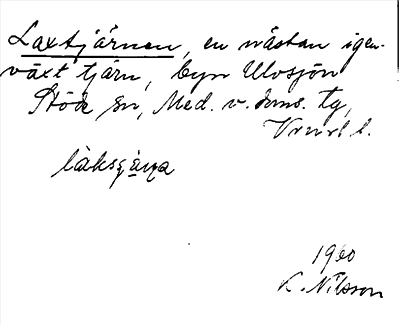 Laxtjärnen, en nästan igen-
växt tjärn, byn Ulvsjön
Stöde sn, Med. v. doms. tg,
Vrnrl l.
làksçä̀ɳa
1960
L. Nilsson